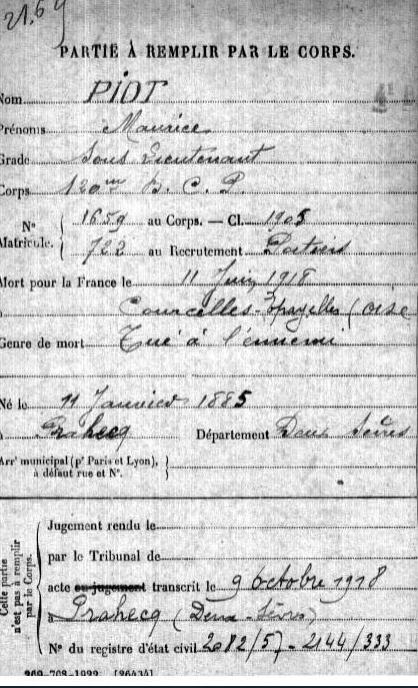 21.69
PARTIE À REMPLIR PAR LE CORPS.
Nom PIOT
Prénoms Maurice
Grade Sous Lieutenant
Corps 120me B. C. P.
N° Matricule. { 1659 au Corps. — Cl. 1905
722 au Recrutement Poitiers
Mort pour la France le 11 Juin 1918
à Courcelles-Epayelles (Oise
Genre de mort Tué à l'ennemi
Né le 11 Janvier 1885
à Prahecq Département Deux Sèvres
Arrt municipal (pr Paris et Lyon), à défaut rue et N°. }
Cette partie n'est pas à remplir par le Corps.
Jugement rendu le
par le Tribunal de
acte ou jugement transcrit le 9 octobre 1918
à Prahecq (Deux-Sèvres)
N° du registre d'état civil 2082/57 - 2144/333
269-708-1922. [26434]